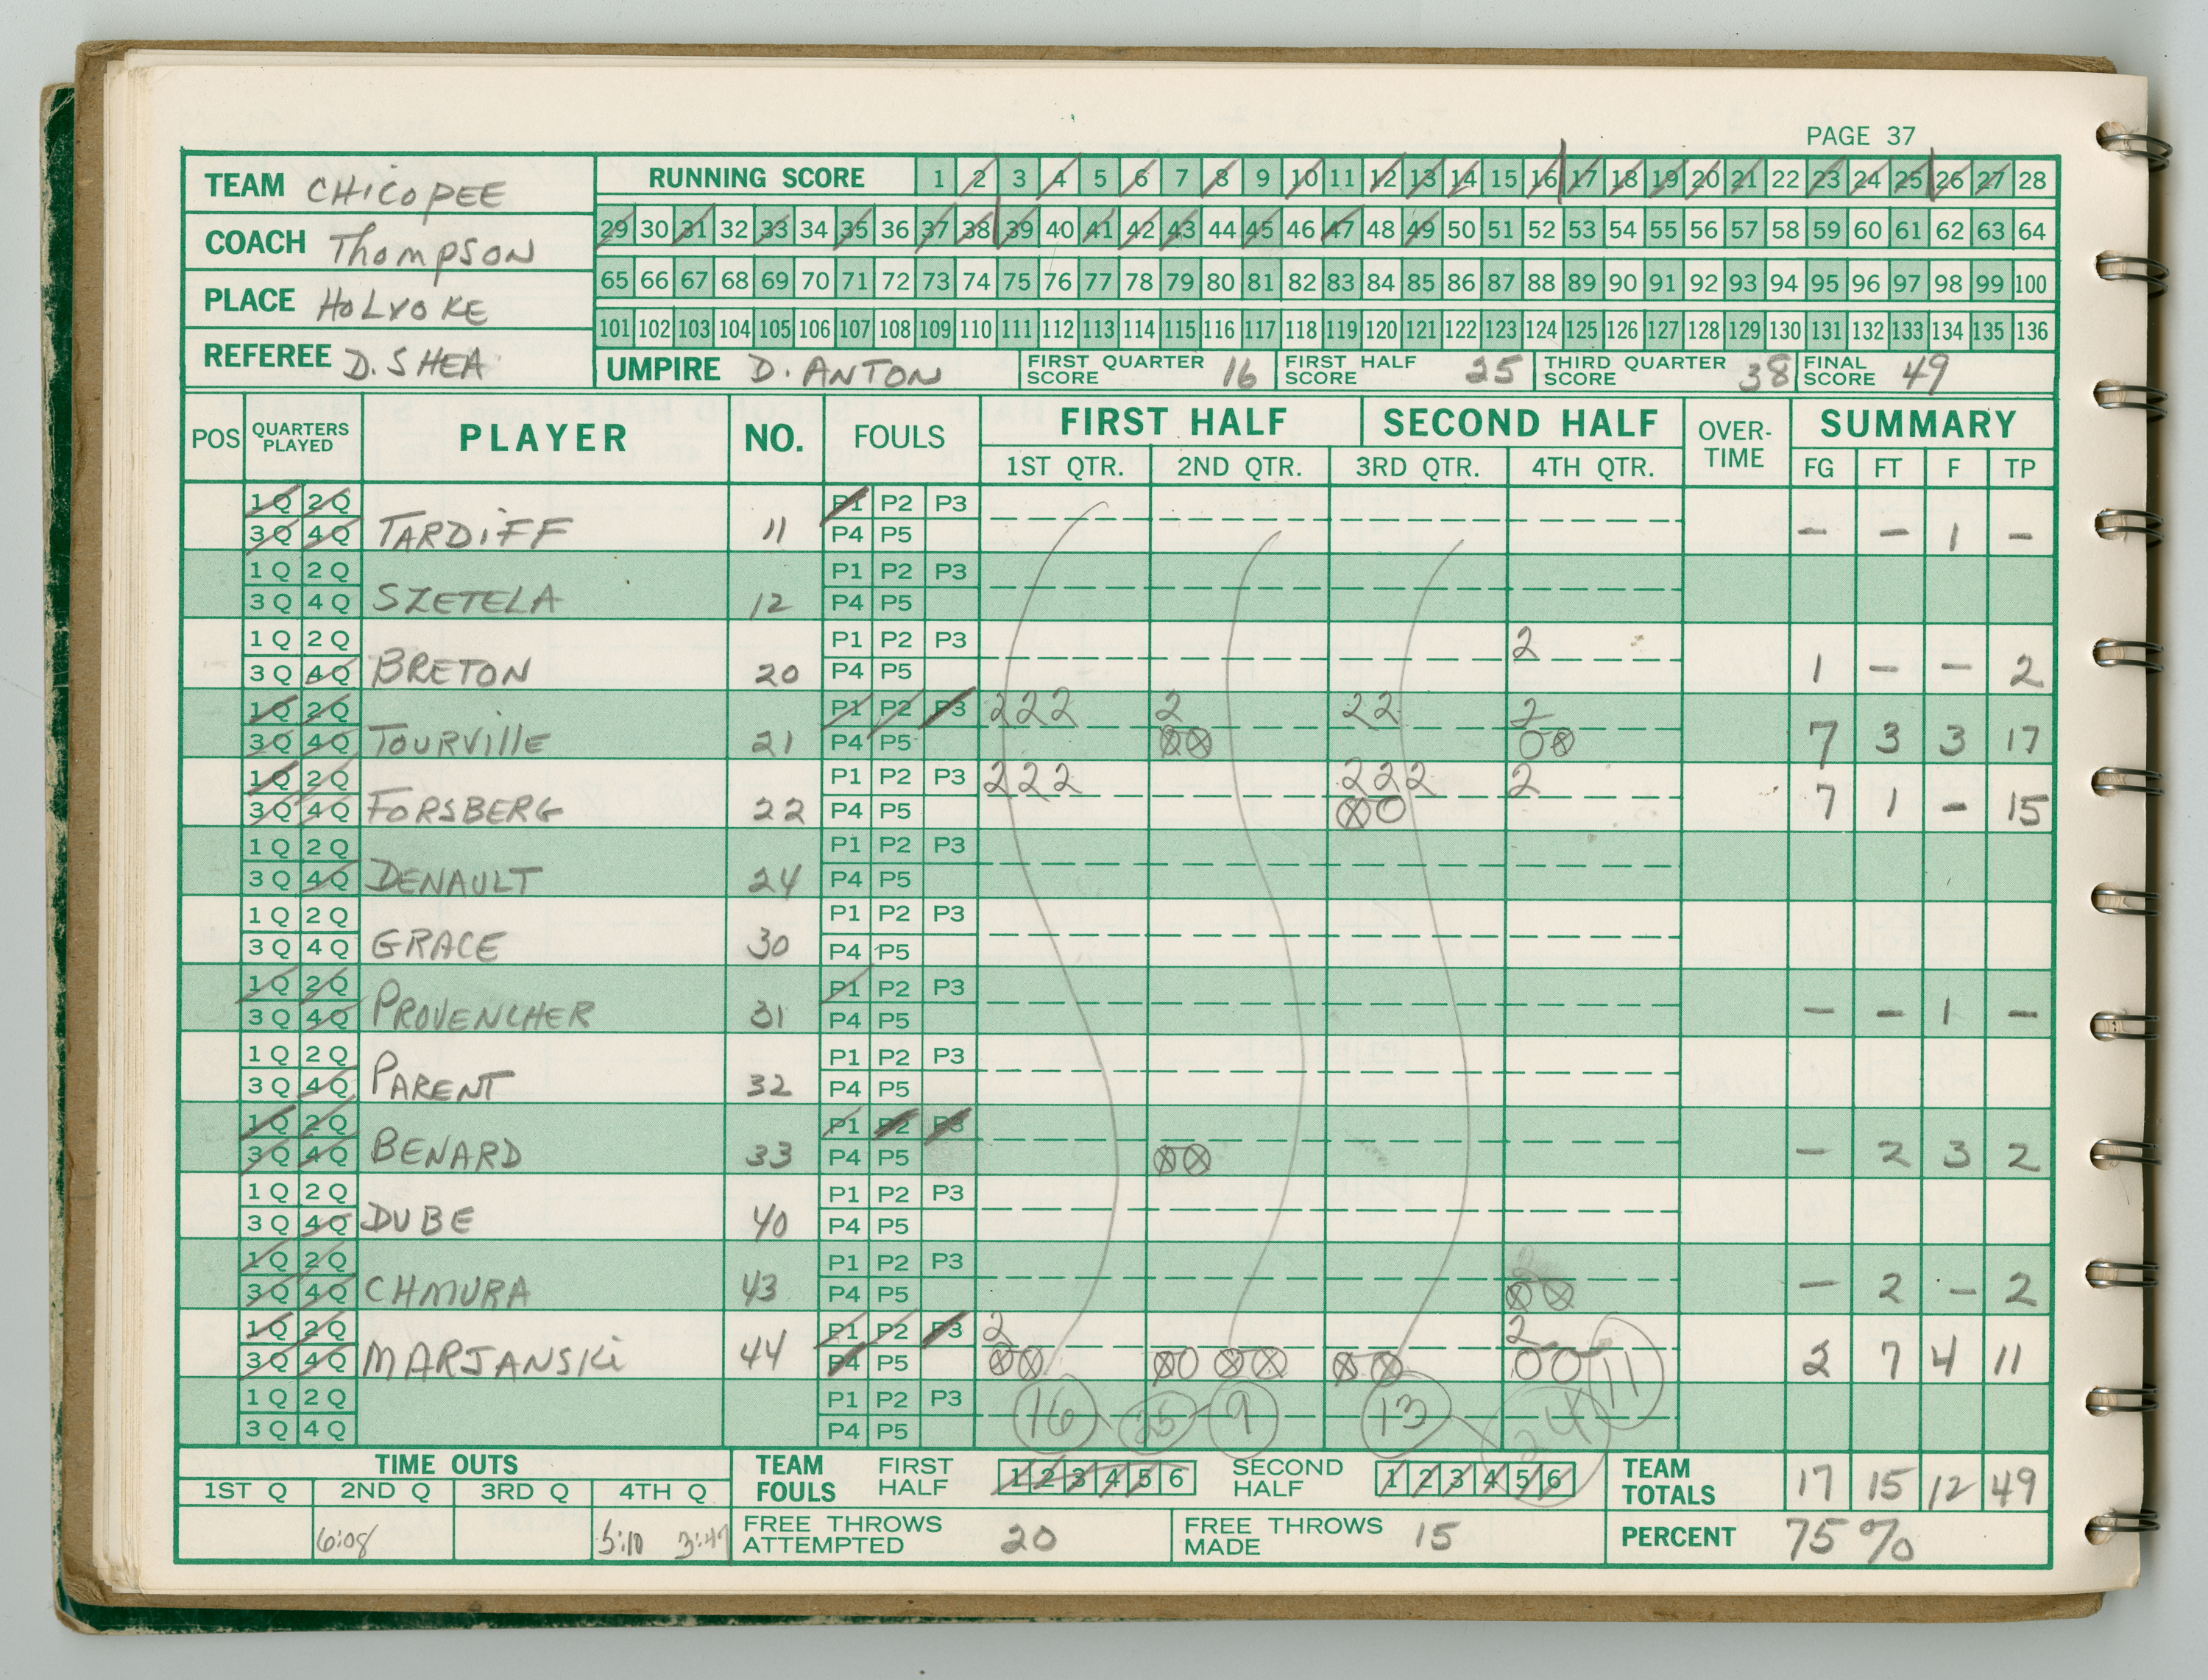 PAGE 37
TEAM CHICOPEE
COACH Thompson
PLACE HOLYOKE
REFEREE D. SHEA
RUNNING SCORE 1 2 3 4 5 6 7 8 9 10 11 12 13 14 15 16 17 18 19 20 21 22 23 24 25 26 27 28
29 30 31 32 33 34 35 36 37 38 39 40 41 42 43 44 45 46 47 48 49 50 51 52 53 54 55 56 57 58 59 60 61 62 63 64
65 66 67 68 69 70 71 72 73 74 75 76 77 78 79 80 81 82 83 84 85 86 87 88 89 90 91 92 93 94 95 96 97 98 99 100
101 102 103 104 105 106 107 108 109 110 111 112 113 114 115 116 117 118 119 120 121 122 123 124 125 126 127 128 129 130 131 132 133 134 135 136
UMPIRE D. ANTON FIRST QUARTER SCORE 16 FIRST HALF SCORE 25 THIRD QUARTER SCORE 38 FINAL SCORE 49
POS QUARTERS PLAYED PLAYER NO. FOULS FIRST HALF SECOND HALF OVER-TIME SUMMARY
1ST QTR. 2ND QTR. 3RD QTR. 4TH QTR. FG FT F TP
1Q 2Q P1 P2 P3
3Q 4Q TARDIFF 11 P4 P5 – – 1 –
1Q 2Q P1 P2 P3
3Q 4Q SZETELA 12 P4 P5
1Q 2Q P1 P2 P3 2
3Q 4Q BRETON 20 P4 P5 1 – – 2
1Q 2Q P1 P2 P3 222 2 22 2
3Q 4Q TOURVILLE 21 P4 P5 ⊗⊗ O⊗ 7 3 3 17
1Q 2Q P1 P2 P3 222 222 2
3Q 4Q FORSBERG 22 P4 P5 ⊗O 7 1 – 15
1Q 2Q P1 P2 P3
3Q 4Q DENAULT 24 P4 P5
1Q 2Q P1 P2 P3
3Q 4Q GRACE 30 P4 P5
1Q 2Q P1 P2 P3
3Q 4Q PROVENCHER 31 P4 P5 – – 1 –
1Q 2Q P1 P2 P3
3Q 4Q PARENT 32 P4 P5
1Q 2Q P1 P2 P3
3Q 4Q BENARD 33 P4 P5 ⊗⊗ – 2 3 2
1Q 2Q P1 P2 P3
3Q 4Q DUBE 40 P4 P5
1Q 2Q P1 P2 P3
3Q 4Q CHMURA 43 P4 P5 ⊗⊗ – 2 – 2
1Q 2Q P1 P2 P3 2 2
3Q 4Q MARJANSKI 44 P4 P5 ⊗⊗ ⊗O ⊗⊗ ⊗⊗ OO 11 2 7 4 11
1Q 2Q P1 P2 P3 16 25 9 13 24
3Q 4Q P4 P5
TIME OUTS
1ST Q 2ND Q 3RD Q 4TH Q
6:08 5:10
TEAM FOULS FIRST HALF 1 2 3 4 5 6 SECOND HALF 1 2 3 4 5 6
TEAM TOTALS 17 15 12 49
FREE THROWS ATTEMPTED 20 FREE THROWS MADE 15 PERCENT 75%